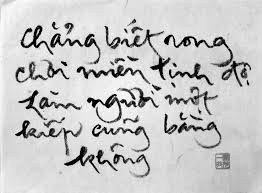 chẳng biết rong
chơi miền tịnh độ
Làm người một
kiếp cũng bằng
không